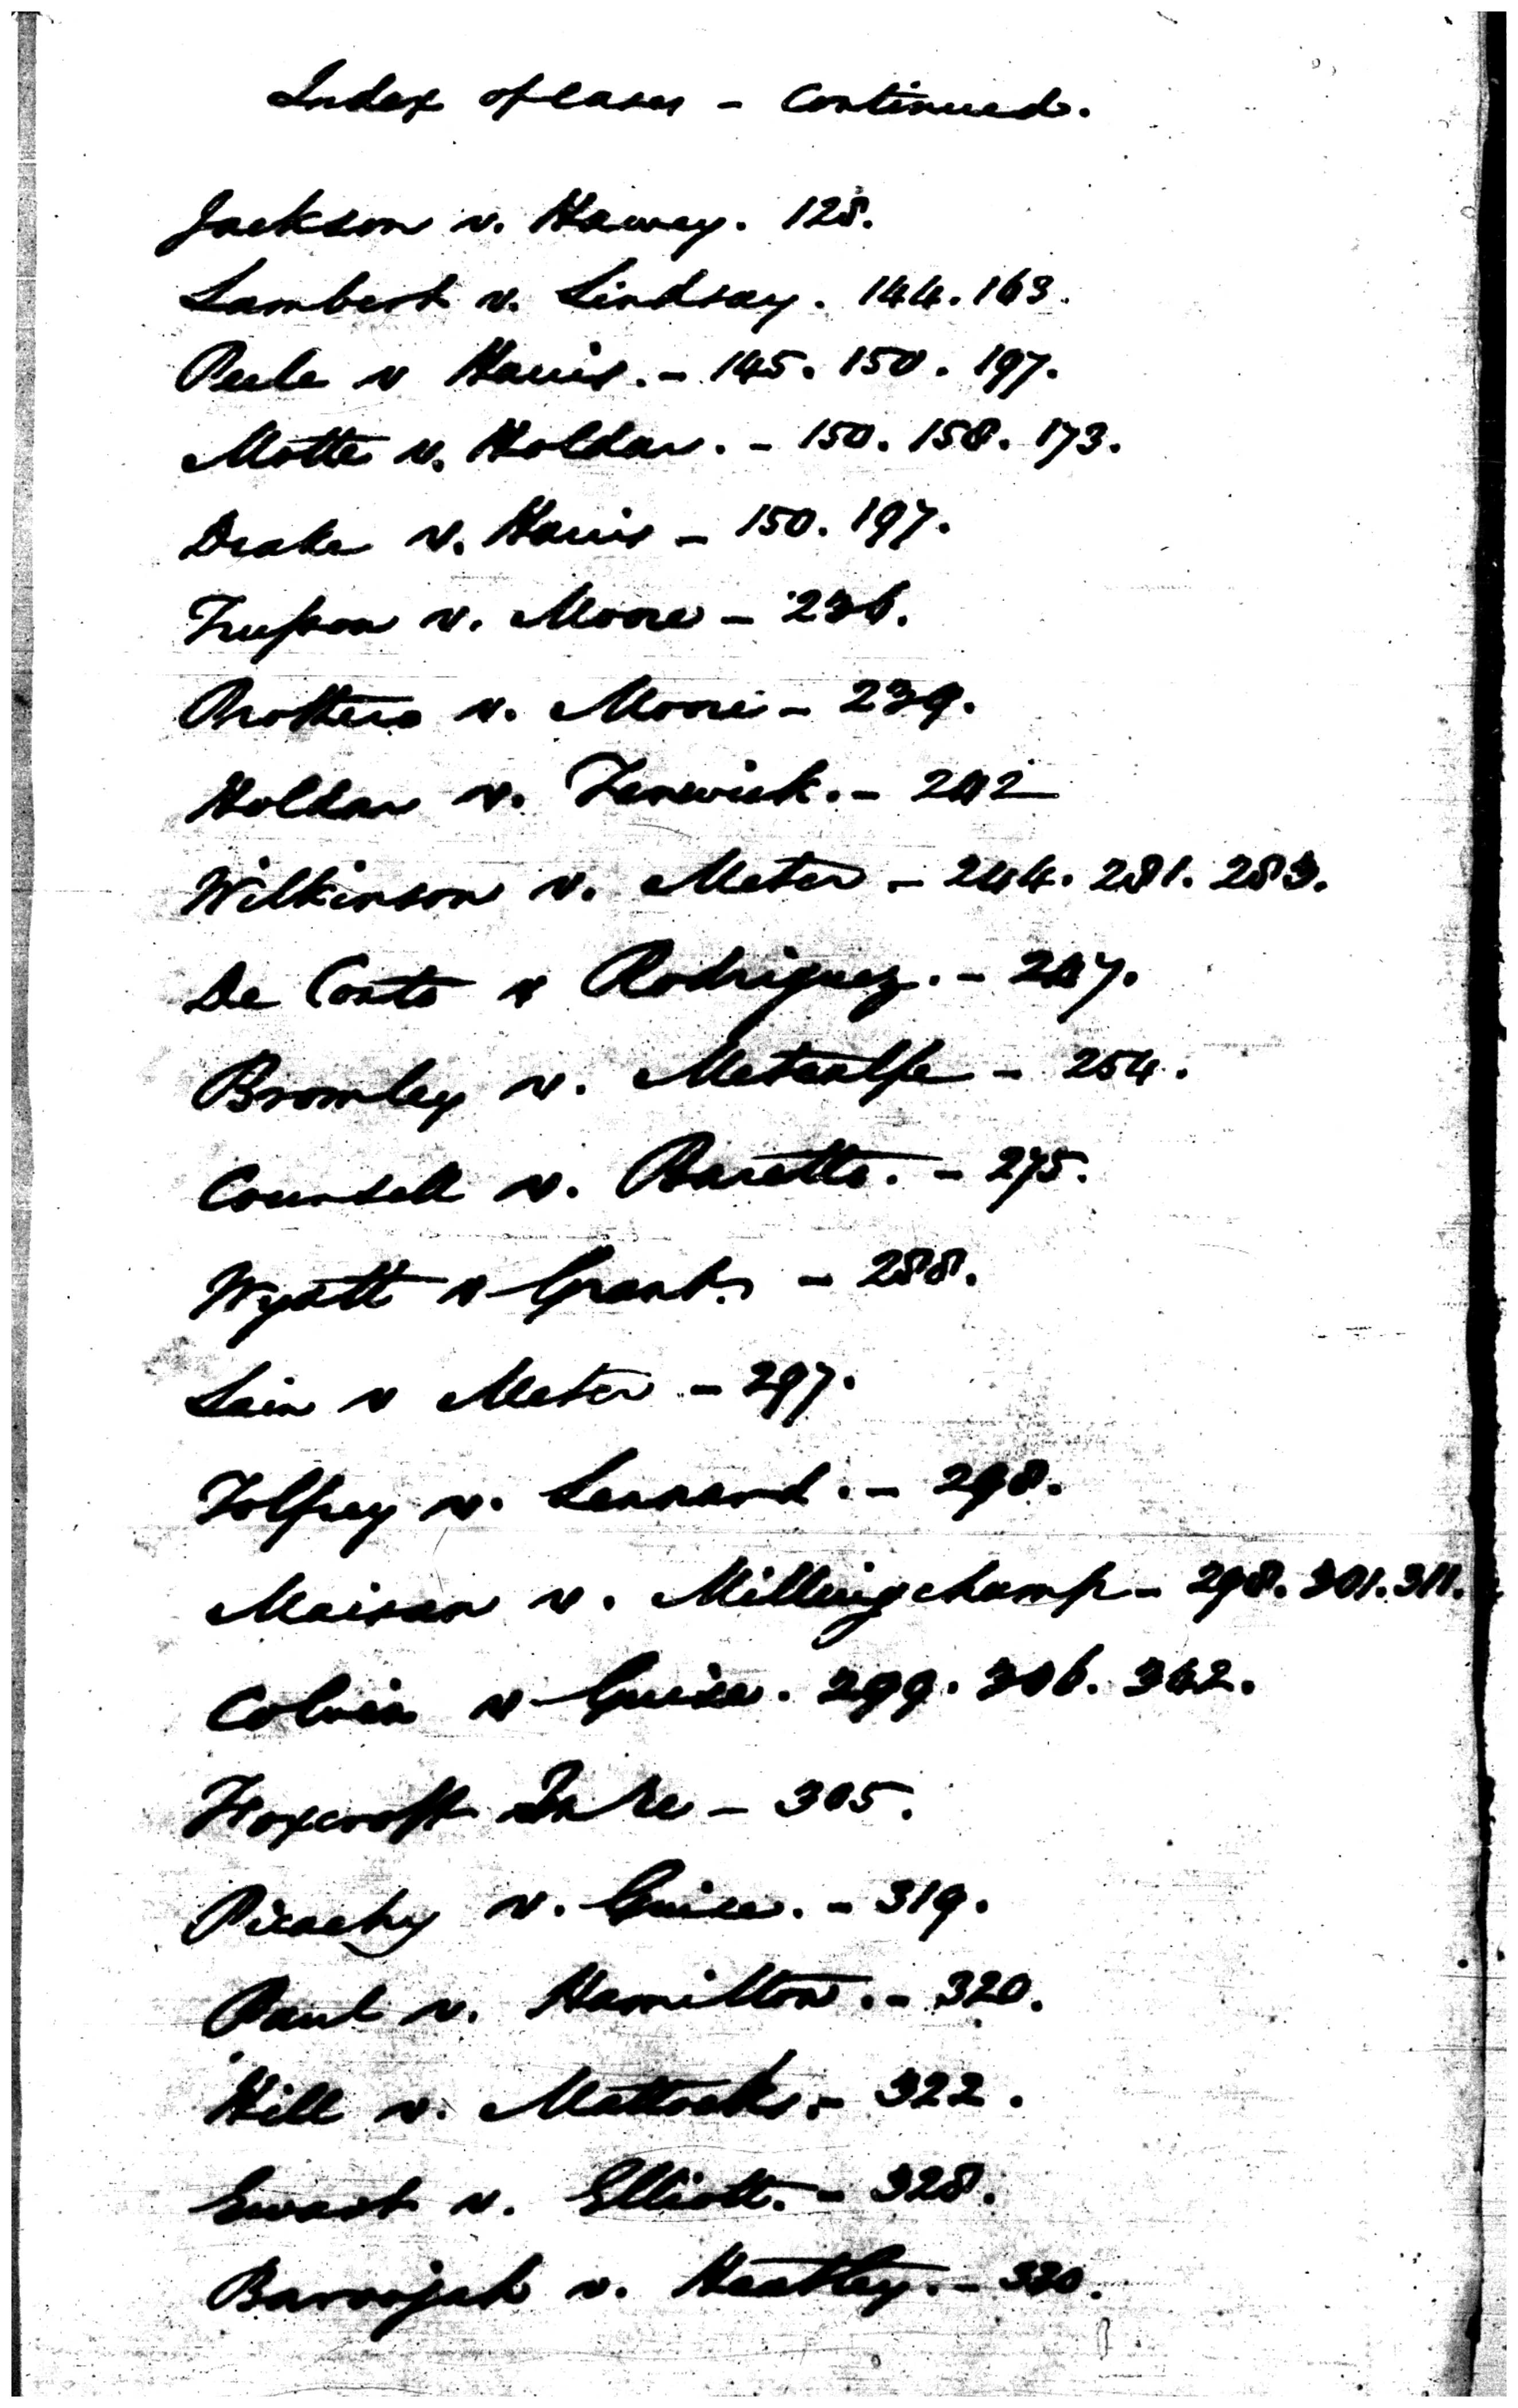 Index of cases - Continued.
Jackson v. Harvey. 128.
Lambert v. Lindsay. 144. 163.
Peele v Harris. - 145. 150. 197.
Motte v. Holdar. - 150. 158. 173.
Drake v. Harris - 150. 197.
v. Moore - 236.
Prothero v. Moore - 239.
Holdar v. Fenwick. - 242
Wilkinson v. Meter - 244. 281. 283.
De Conto v Rodriguez. - 247.
Bromley v. Metcalfe - 254.
Counsell v. Baretto. - 275.
Wyatt v Grant. - 288.
v Meter - 297.
Tolfrey v. Lennard. - 298.
v. Millingchamp - 298. 301. 311.
Colvin v Guise. 299. 306. 342.
Foxcroft In Re - 305.
Picachy v. Guise. - 319.
Paul v. Hamilton. - 320.
Hill v. Mattocks. - 322.
Ewart v. Elliott. - 328.
v. Heatley. - 330.